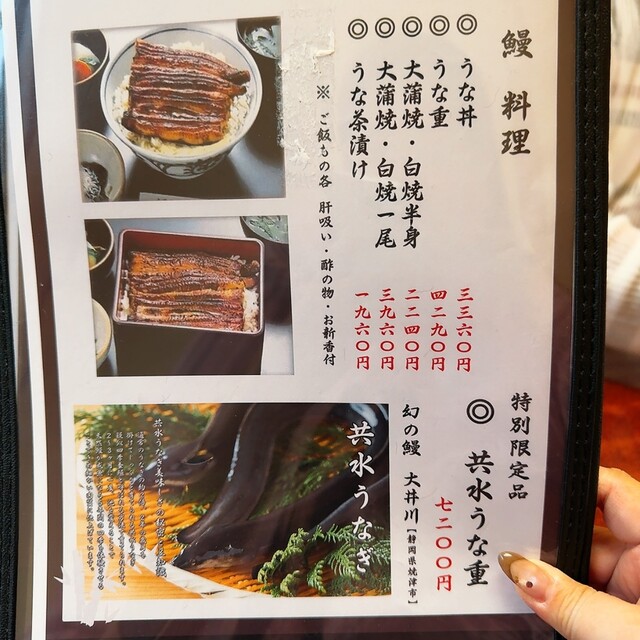 鰻 料理
◎ うな丼 三三六〇円
◎ うな重 四二九〇円
◎ 大蒲焼・白焼半身 二二四〇円
◎ 大蒲焼・白焼一尾 三九六〇円
◎ うな茶漬け 一九六〇円
※ ご飯もの各 肝吸い・酢の物・お新香付
特別限定品
◎ 共水うな重
七二〇〇円
幻の鰻 大井川【静岡県焼津市】
共水うなぎ